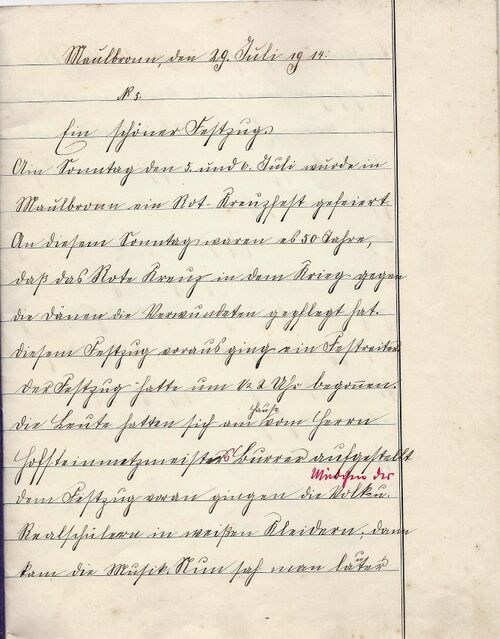 Maulbronn, den 29. Juli 1914.
N 5.
Ein schöner Festzug.
Am Sonntag den 5. und 6. Juli wurde in
Maulbronn ein Rot-Kreuzfest gefeiert
An diesem Sonntag waren es 50 Jahre,
daß das Rote Kreuz in dem Krieg gegen
die Dänen die Verwundeten gepflegt hat.
Diesem Festzug voraus ging ein Festreiter.
Der Festzug hatte um ½ 2 Uhr begonnen.
Die Leute hatten sich am Hause vom Herrn
Hofsteinmetzmeisters Burrer aufgestellt
Mädchen der
dem Festzug voran gingen die Volk u.
Realschülern in weißen Kleidern, dann
kam die Musik. Nun sah man lauter